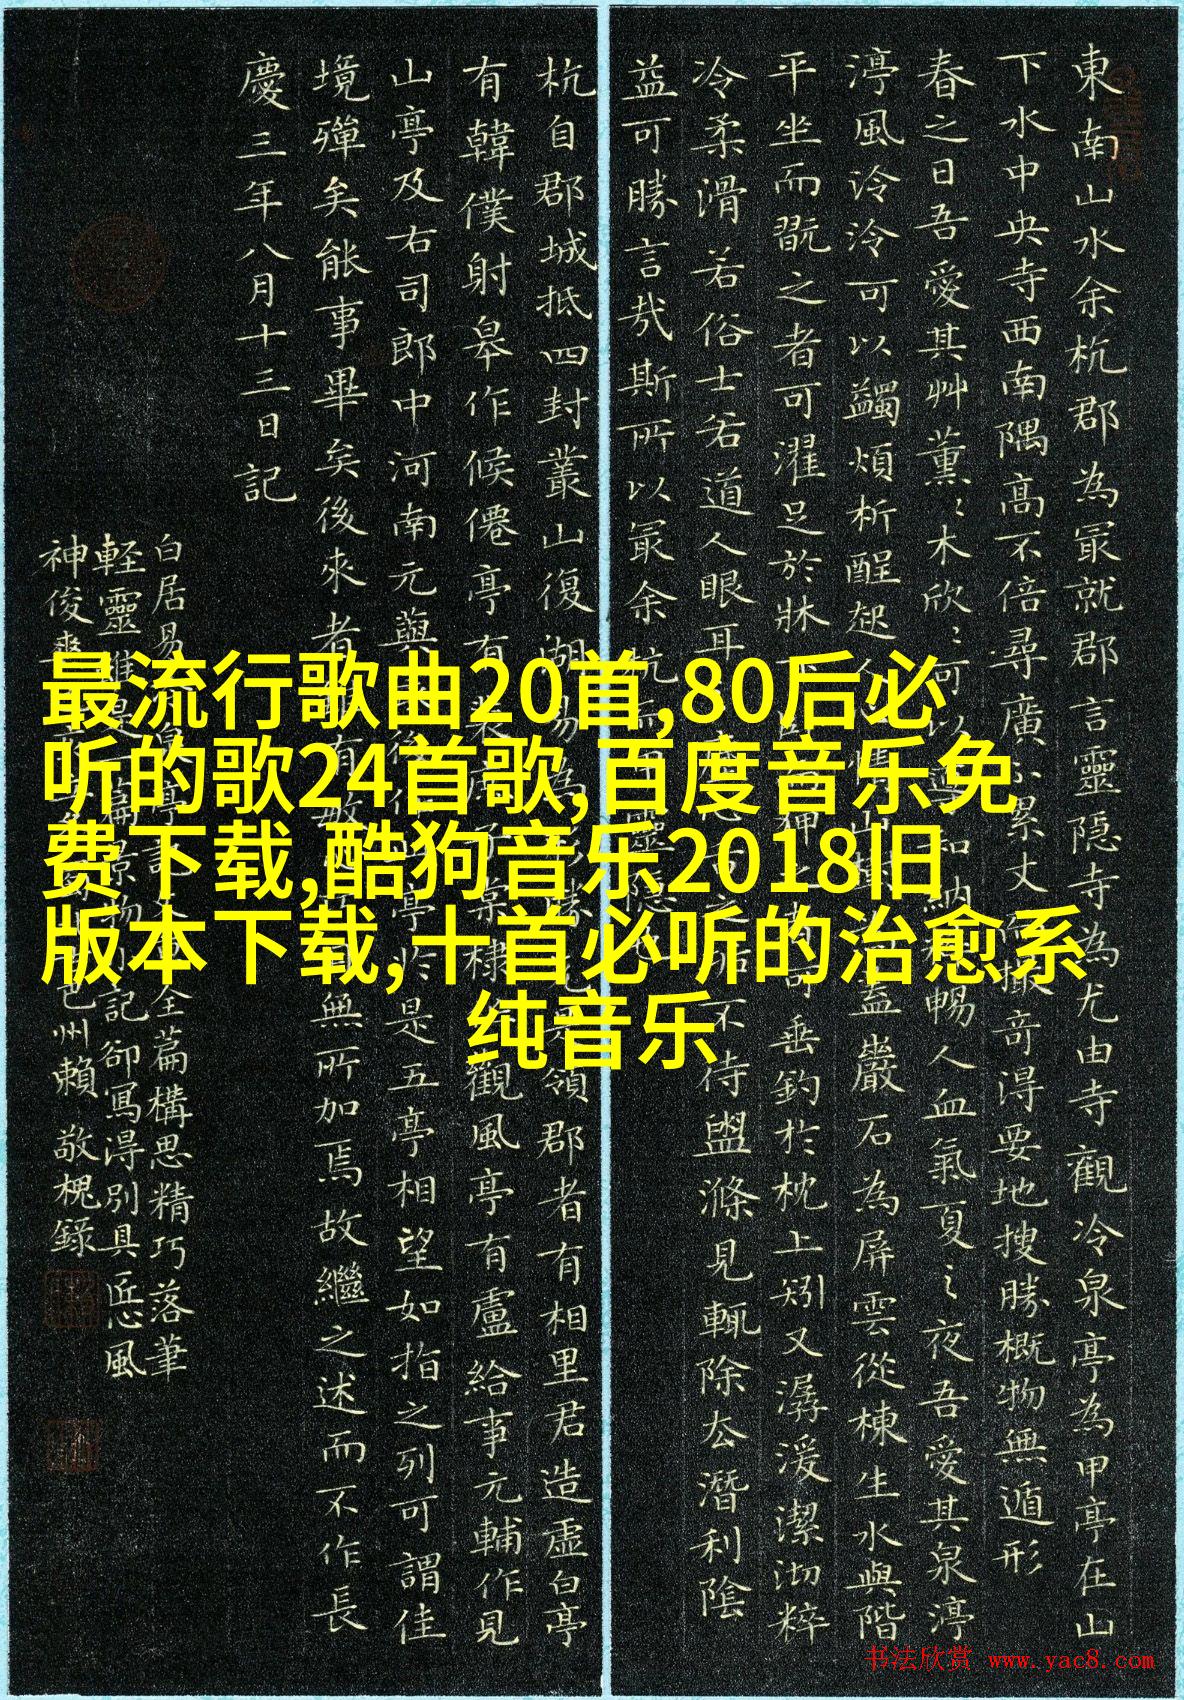 東南山水余杭郡為冣就郡言靈隐寺為尤由寺觀冷泉亭為甲亭在山
下水中央寺西南隅高不倍尋廣不累丈撮奇得要地搜勝概物無遁形
春之日吾愛其艸薰〻木欣〻可以和納暢人血氣夏之夜吾愛其泉渟
渟風泠泠可以蠲煩析酲起人山蓋巖石為屏雲從棟生水與階
平坐而翫之者可濯足於牀下卧狎可垂釣於枕上矧又潺湲潔沏粹
冷柔滑若俗士若道人眼耳之不待盥滌見輒除去潛利陰
益可勝言哉斯所以冣余杭靈隐也
杭自郡城抵四封叢山復湖易為勝是領郡者有相里君造虛白亭
有韓僕射皋作候僊亭有裴子棠棣觀風亭有盧給事元輔作見
山亭及右司郎中河南元藇後作亭於是五亭相望如指之列可謂佳
境殫矣能事畢矣後來者有敏無所加焉故繼之述而不作長
慶三年八月十三日記
白居易亭記全篇構思精巧落筆
輕靈雖景物記卻寫得別具匠心風
神俊爽巴州賴敬槐錄
最流行歌曲20首,80后必
听的歌24首歌,百度音乐免
费下载,酷狗音乐2018旧
版本下载,十首必听的治愈系
纯音乐
书法欣赏 www.yac8.com